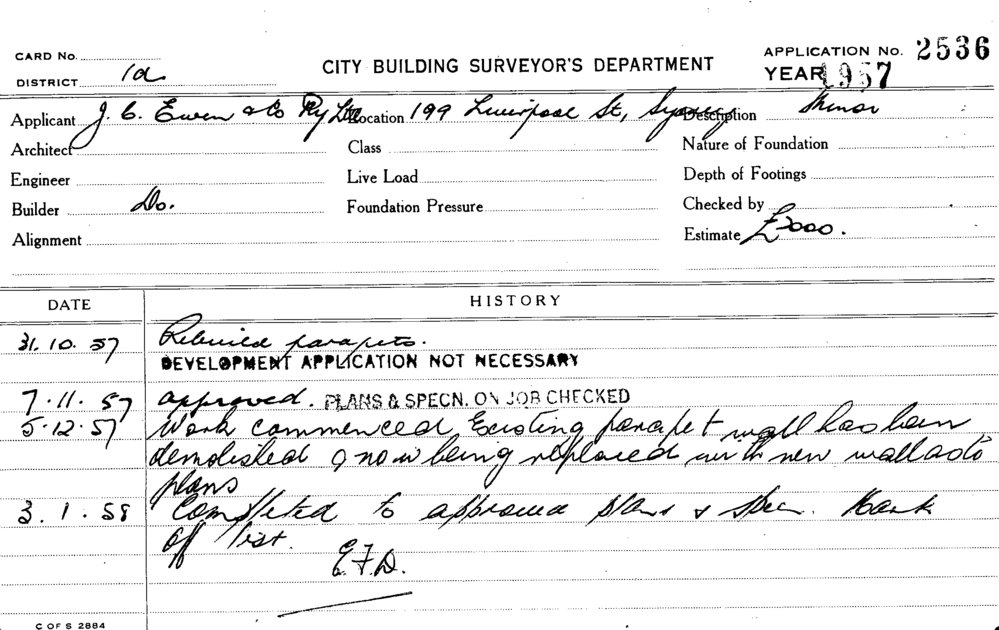 CARD No.
DISTRICT 1a
CITY BUILDING SURVEYOR'S DEPARTMENT
APPLICATION No. 2536
YEAR 1957
Applicant J. C. Ewen & Co Pty Ltd Location 199 Liverpool St, Sydney Description Minor
Architect Class Nature of Foundation
Engineer Live Load Depth of Footings
Builder Do. Foundation Pressure Checked by
Alignment Estimate £2000.
DATE HISTORY
31. 10. 57 Rebuild parapets.
DEVELOPMENT APPLICATION NOT NECESSARY
7. 11. 57 approved. PLANS & SPECN. ON JOB CHECKED
5. 12. 57 Work commenced. Existing parapet wall has been
demolished & now being replaced with new wall as to
plans
3. 1. 58 Completed to approved plans & specn. Mark
off list.
E.F.D.
C OF S 2884